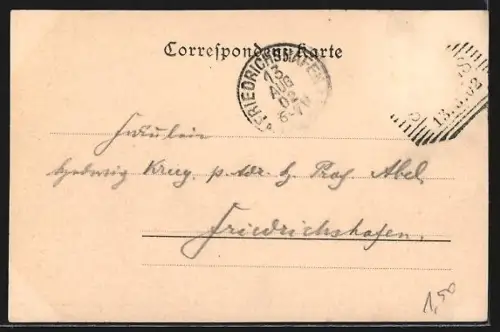 Correspondenz-Karte
FRIEDRICHSHAFEN
13
AUG
02
6-7 N
13.8.02
Fräulein
Hedwig Krug. p. adr. H. Prof. Abel,
Friedrichshafen.
1,50